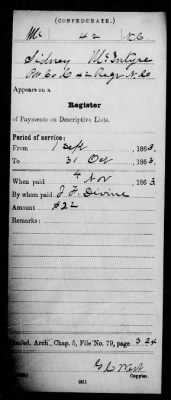 (CONFEDERATE.)
Mc 42 N.C.
Sidney McIntyre
Co. C 42 Regt. N.C.
Appears on a
Register
of Payments on Descriptive Lists.
Period of service:
From 1 Sept, 1863.
To 31 Oct, 1863.
When paid 4 Nov, 1863.
By whom paid J. F. Divine
Amount $22
Remarks:
Confed. Arch., Chap. 5, File No. 79, page 324
G. C. West
Copyist.